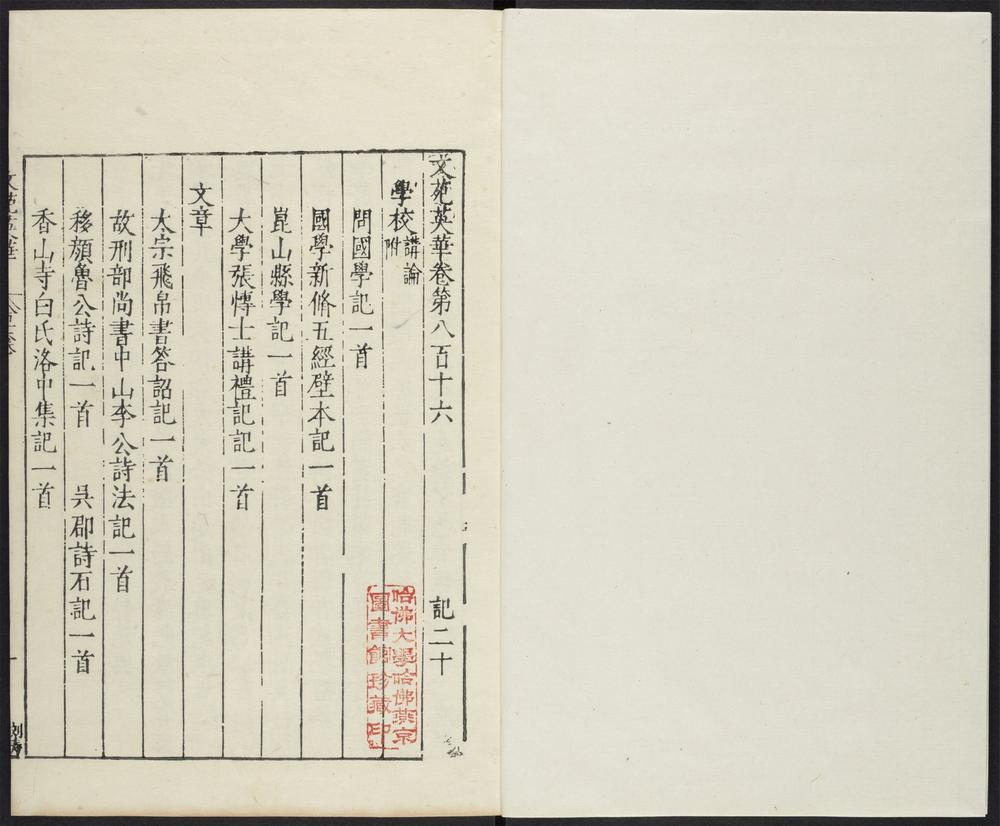 文苑英華卷第八百十六　記二十
學校講論附
問國學記一首
國學新脩五經壁本記一首
崑山縣學記一首
大學張愽士講禮記記一首
文章
太宗飛帛書答詔記一首
故刑部尚書中山李公詩法記一首
移顔魯公詩記一首　吳郡詩石記一首
香山寺白氏洛中集記一首
哈佛大學哈佛燕京
圖書館珍藏印